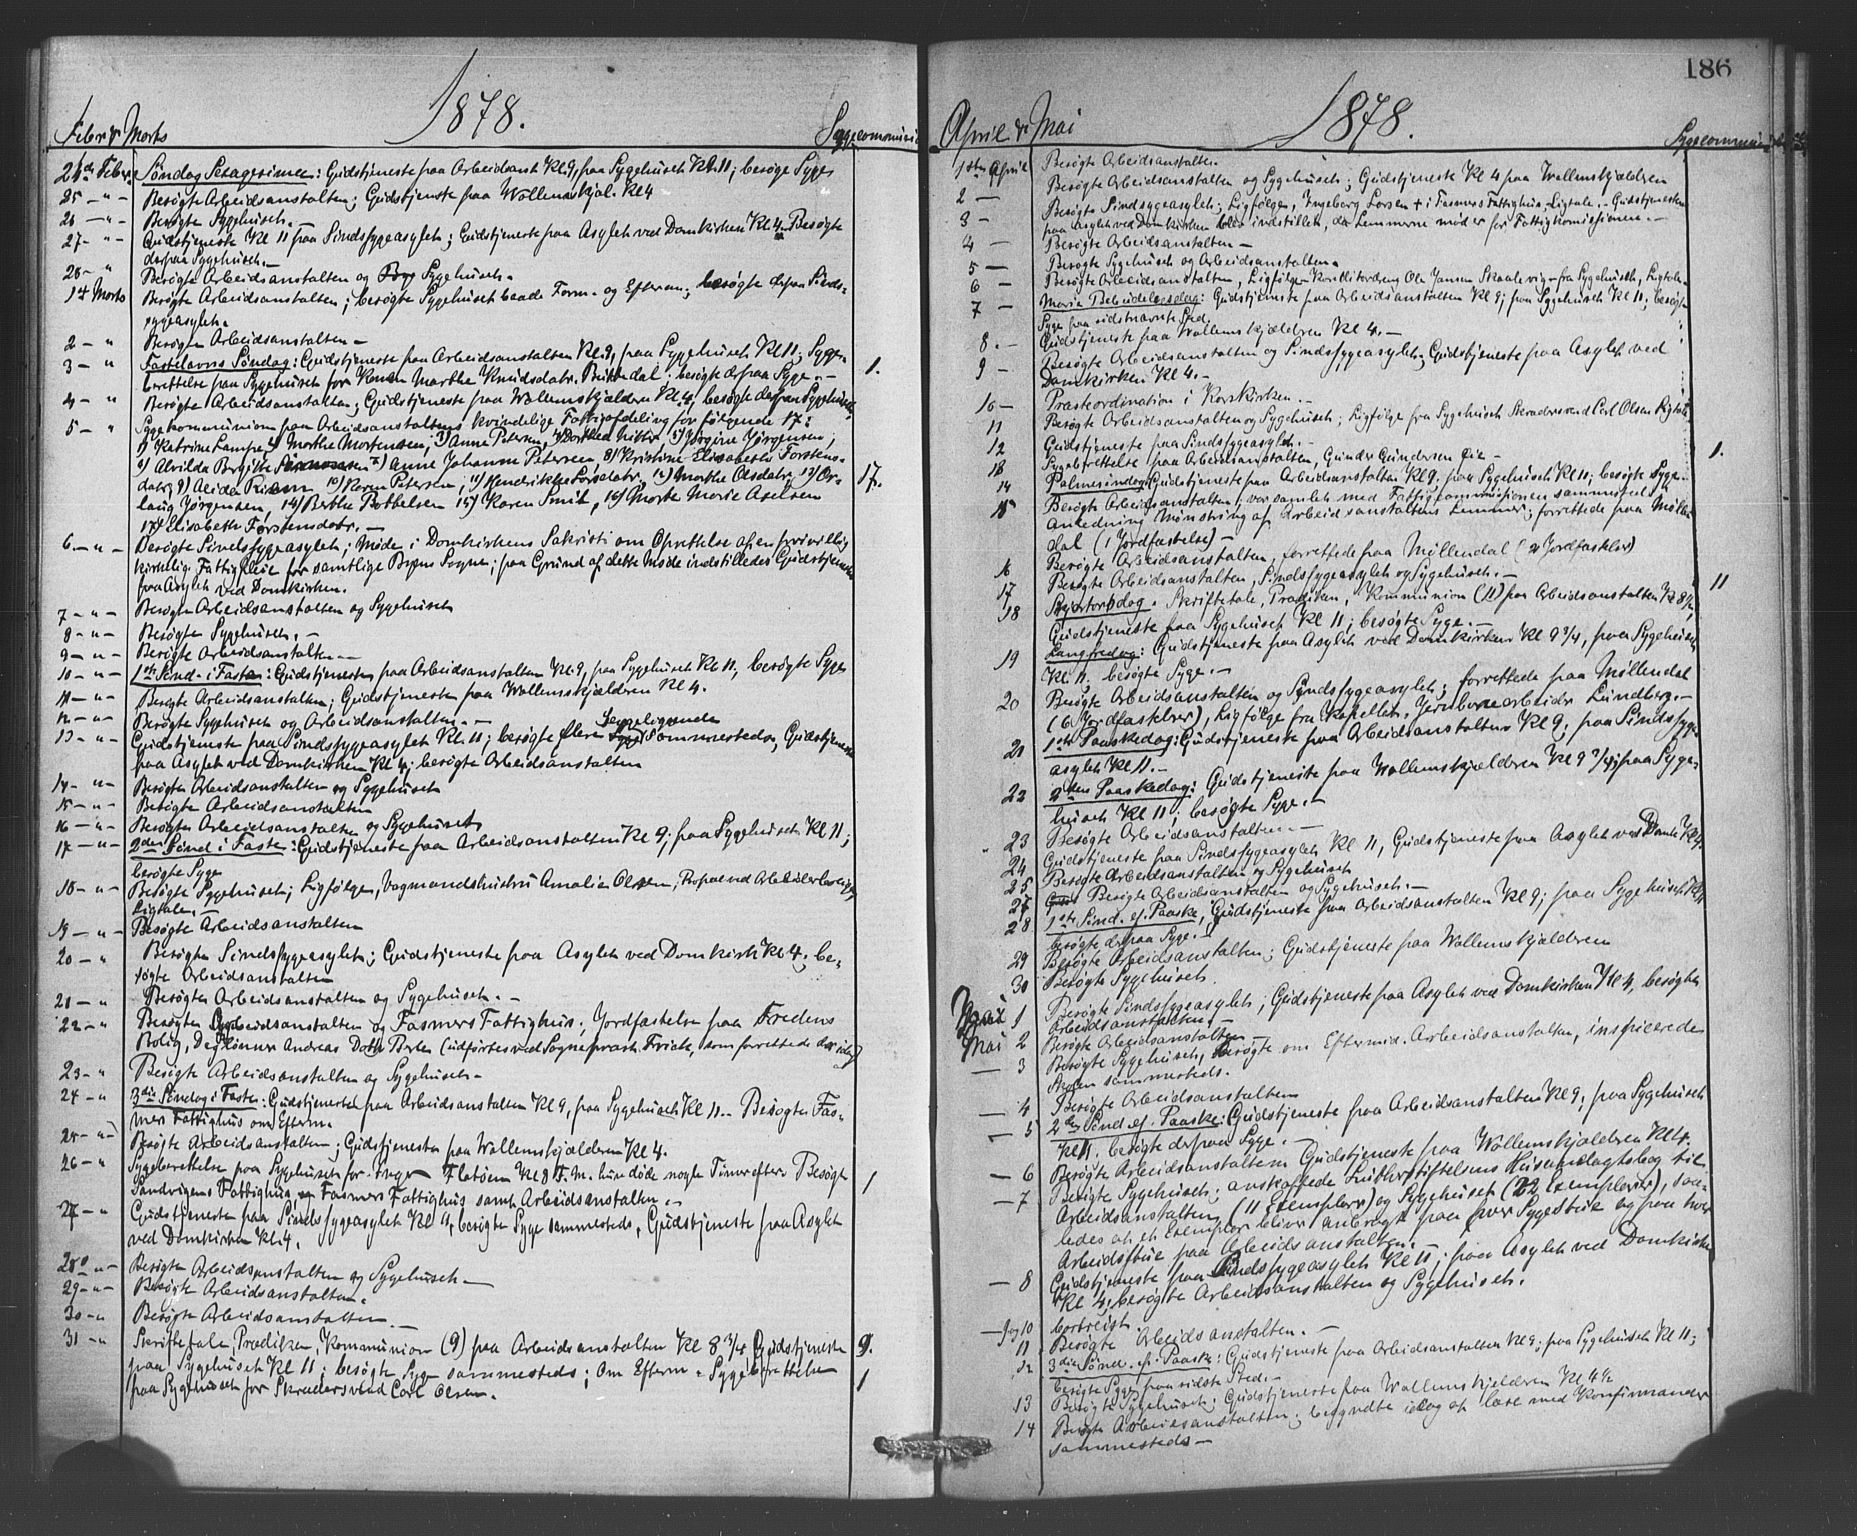 1878.
Febr & Marts
Sygecommunic
24de Febr. Søndag Sexagesima: Gudstjeneste paa Arbeidsanst Kl 9, paa Sygehuset Kl 11; besøgte Syge
25 - " - Besøgte Arbeidsanstalten; Gudstjeneste paa Wollemskjæl. Kl 4
26 - " - Besøgte Sygehuset. -
27 - " - Gudstjeneste Kl 11 paa Sindssygeasylet; Gudstjeneste paa Asylet ved Domkirken Kl 4. Besøgte
derpaa Sygehuset. -
28 - " Besøgte Arbeidsanstalten og Sygehuset.
1ste Marts Besøgte Arbeidsanstalten; besøgte Sygehuset baade Form. og Efterm.; besøgte derpaa Sinds-
sygeasylet.
2 - " Besøgte Arbeidsanstalten -
3 - " Fastelavns Søndag: Gudstjeneste paa Arbeidsanstalten Kl. 9, paa Sygehuset Kl 11; Syge- 1.
berettelse paa Sygehuset for Konen Marthe Knudsdatr. besøgte derpaa Syge. -
4 - " Besøgte Arbeidsanstalten; Gudstjeneste paa Wollemskjælderen Kl 4, besøgte derpaa Sygehuset
5 - " Sygekommunion paa Arbeidsanstaltens kvindelige Fattigafdeling for følgende 17:
1) Katrine Lampe, 2) Marthe Mortensen, 3) Anne Petersen, 4) Dorthea 5) Jørgine Jørgensen,
6) Alvilda Birgitte 7) Anne Johanne Petersen 8) Kristine Elisabeth Torstens-
datr, 9) Alida 10) Karen Petersen, 11) Hendrikke Larsdatr, 12) Marthe Olsdatr, 13) Os- 17.
laug Jørgensen, 14) Berthe 15) Karen Smit, 16) Marte Marie Axelsen
17) Elisabeth Torstensdatr. -
6 - " - Besøgte Sindssygeasylet; Møde i Domkirkens Sakristi om Oprettelse af en frivillig
kirkelig Fattigpleie for samtlige Byens Sogne; paa Grund af dette Møde indstilledes Gudstjenesten
paa Asylet ved Domkirken.
7 - " - Besøgte Arbeidsanstalten og Sygehuset
8 - " - Besøgte Sygehuset. -
9 - " - Besøgte Arbeidsanstalten -
10 - " - 1ste Sønd. i Faste: Gudstjeneste paa Arbeidsanstalten Kl. 9, paa Sygehuset Kl. 11, besøgte Syge
11 - " - Besøgte Arbeidsanstalten; Gudstjeneste paa Wollemskjælderen Kl 4.
12 - " - Besøgte Sygehuset og Arbeidsanstalten. -
13 - " - Gudstjeneste paa Sindssygeasylet Kl. 11; besøgte flere Sengeliggende sammesteds, Gudstjeneste
paa Asylet ved Domkirken Kl 4; besøgte Arbeidsanstalten
14 - " - Besøgte Arbeidsanstalten og Sygehuset
15 - " - Besøgte Arbeidsanstalten
16 - " - Besøgte Arbeidsanstalten og Sygehuset
17 - " - 2den Sønd i Faste: Gudstjeneste paa Arbeidsanstalten Kl 9; paa Sygehuset Kl 11;
besøgte Syge
18 - " - Besøgte Sygehuset; Ligfølge, Vogmandshustru Amalie Olsen,
Ligtale. -
19 - " - Besøgte Arbeidsanstalten
20 - " Besøgte Sindssygeasylet; Gudstjeneste paa Asylet ved Domkirk Kl 4; be-
søgte Arbeidsanstalten
21 - " Besøgte Arbeidsanstalten og Sygehuset. -
22 - " Besøgte Arbeidsanstalten og Fasmers Fattighus; Jordfæstelse paa Fredens
Bolig, Andreas (udførtes ved Sogneprest Frich, som forrettede
23 - " Besøgte Arbeidsanstalten og Sygehuset -
24 - " 3die Søndag i Faste: Gudstjeneste paa Arbeidsanstalten Kl 9, paa Sygehuset Kl 11 - Besøgte Fas-
mers Fattighus om Efterm.
25 - " Besøgte Arbeidsanstalten; Gudstjeneste paa Wollemskjælderen Kl 4.
26 - " Sygeberettelse paa Sygehuset for Kl 8 F.M. hun døde nogle Timer efter. Besøgte 1
Sandvigens Fattighus, og Fasmers Fattighus samt Arbeidsanstalten. -
27 - " Gudstjeneste paa Sindssygeasylet Kl 11, besøgte Syge sammesteds, Gudstjeneste paa Asylet
ved Domkirken Kl 4.
28 - " - Besøgte Arbeidsanstalten og Sygehuset -
29 - " - Besøgte Arbeidsanstalten.
30 - " Besøgte Arbeidsanstalten. -
31 - " Skriftetale, Prædiken, Kommunion (9) paa Arbeidsanstalten Kl 8 3/4 Gudstjeneste 9.
paa Sygehuset Kl 11; besøgte Syge sammesteds; Om Efterm - Sygeberettelse
paa Sygehuset for Skræddersvend Carl Olsen. 1
186
1878.
April & Mai
Sygecommunic
1ste April Besøgte Arbeidsanstalten.
2 - Besøgte Arbeidsanstalten og Sygehuset; Gudstjeneste Kl 4 paa Wollemskjælderen
3 - Besøgte Sindsygeasylet; Ligfølge, Ingeborg Larsen + i Fasmers Fattighus, Ligtale. - Gudstjenesten
paa Asylet ved Domkirken blev indstillet, da Lemmerne møder for Fattigkomissionen. -
4 - Besøgte Arbeidsanstalten -
5 - Besøgte Sygehuset og Arbeidsanstalten. -
6 - Besøgte Arbeidsanstalten, Ligfølge Ole Jansen fra Sygehuset, Ligtale.
7 - Maria Bebudelsesdag: Gudstjeneste paa Arbeidsanstalten Kl 9; paa Sygehuset Kl 11; besøgte
Syge paa sidstnævnte Sted.
8. - Gudstjeneste paa Wollemskjælderen Kl 4. -
9 - Besøgte Arbeidsanstalten og Sindssygeasylet, Gudstjeneste paa Asylet ved
Domkirken Kl 4. -
10 - Præsteordination i Korskirken. -
11 Besøgte Arbeidsanstalten og Sygehuset; Ligfølge fra Sygehuset Skræddersvend Carl Olsen Ligtale
12 Gudstjeneste paa Sindssygeasylet. -
13 Sygeberettelse paa Arbeidsanstalten, Gunder Gundersen Eie - 1.
14 Palmesøndag Gudstjeneste paa Arbeidsanstalten Kl 9. paa Sygehuset Kl 11; besøgte Syge.
15 Besøgte Arbeidsanstalten; var samlet med Fattigcommissionen sammesteds i
Anledning Mønstring af Arbeidsanstaltens Lemmer; forrettede paa Møllen-
dal (1 Jordfæstelse) -
16 Besøgte Arbeidsanstalten, forrettede paa Møllendal (2 Jordfæstelser)
17 Besøgte Arbeidsanstalten, Sindssygeasylet og Sygehuset. -
18 Skjærtorsdag. Skriftetale, Prædiken, Kommunion (11) paa Arbeidsanstalten Kl 8½, 11
Gudstjeneste paa Sygehuset Kl 11; besøgte Syge. -
19 Langfredag: Gudstjeneste paa Asylet ved Domkirken Kl 9 3/4, paa Sygehuset
Kl 11. besøgte Syge. -
20 Besøgte Arbeidsanstalten og Sindssygeasylet; forrettede paa Møllendal
(6 Jordfæstelser), Ligfølge fra Kapellet, Jernbanearbeider Lundberg. -
21 1ste Paaskedag: Gudstjeneste paa Arbeidsanstalten Kl 9; paa Sindssyge-
asylet Kl 11. -
22 2den Paaskedag: Gudstjeneste paa Wollemskjælderen Kl 9 3/4; paa Syge-
huset Kl 11; besøgte Syge. -
23 Besøgte Arbeidsanstalten. -
24 Gudstjeneste paa Sindssygeasylet Kl 11, Gudstjeneste paa Asylet ved Domk Kl 4.
25 Besøgte Arbeidsanstalten og Sygehuset
27 Besøgte Arbeidsanstalten og Sygehuset. -
28 1ste Sønd. ef. Paaske, Gudstjeneste paa Arbeidsanstalten Kl 9; paa Sygehuset Kl 11
besøgte derpaa Syge. -
29 Besøgte Arbeidsanstalten; Gudstjeneste paa Wollemskjælderen
30 Besøgte Sygehuset.
1 Besøgte Sindssygeasylet; Gudstjeneste paa Asylet ved Domkirken Kl 4, besøgte
Arbeidsanstalten. -
Mai 2 Besøgte Arbeidsanstalten
- 3 Besøgte Sygehuset, besøgte om Eftermid. Arbeidsanstalten, inspicerede
Skolen sammesteds.
- 4 Besøgte Arbeidsanstalten
- 5 2den Sønd. ef. Paaske: Gudstjeneste paa Arbeidsanstalten Kl 9, paa Sygehuset
Kl 11. besøgte derpaa Syge. -
- 6 Besøgte Arbeidsanstalten Gudstjeneste paa Wollemskjælderen Kl 4.
- 7 Besøgte Sygehuset; anskaffede Lutherstiftelsens Husandagtsbog til
Arbeidsanstalten (11 Exemplarer) og Sygehuset (22 Exemplarer), saa-
ledes at et Exemplar bliver anbragt paa hver Sygestue og paa hver
Arbeidsstue paa Arbeidsanstalten.
- 8 Gudstjeneste paa Sindssygeasylet Kl 11; paa Asylet ved Domkirken
Kl 4; besøgte Arbeidsanstalten og Sygehuset.
- 9 og 10 bortreist.
11 Besøgte Arbeidsanstalten. -
12 3die Sønd. ef. Paaske: Gudstjeneste paa Arbeidsanstalten Kl 9; paa Sygehuset Kl 11;
besøgte Syge paa sidste Sted. -
13 Besøgte Sygehuset; Gudstjeneste paa Wollemskjælderen Kl 4½
14 Besøgte Arbeidsanstalten; begyndte idag at læse med Konfirmander
sammesteds -